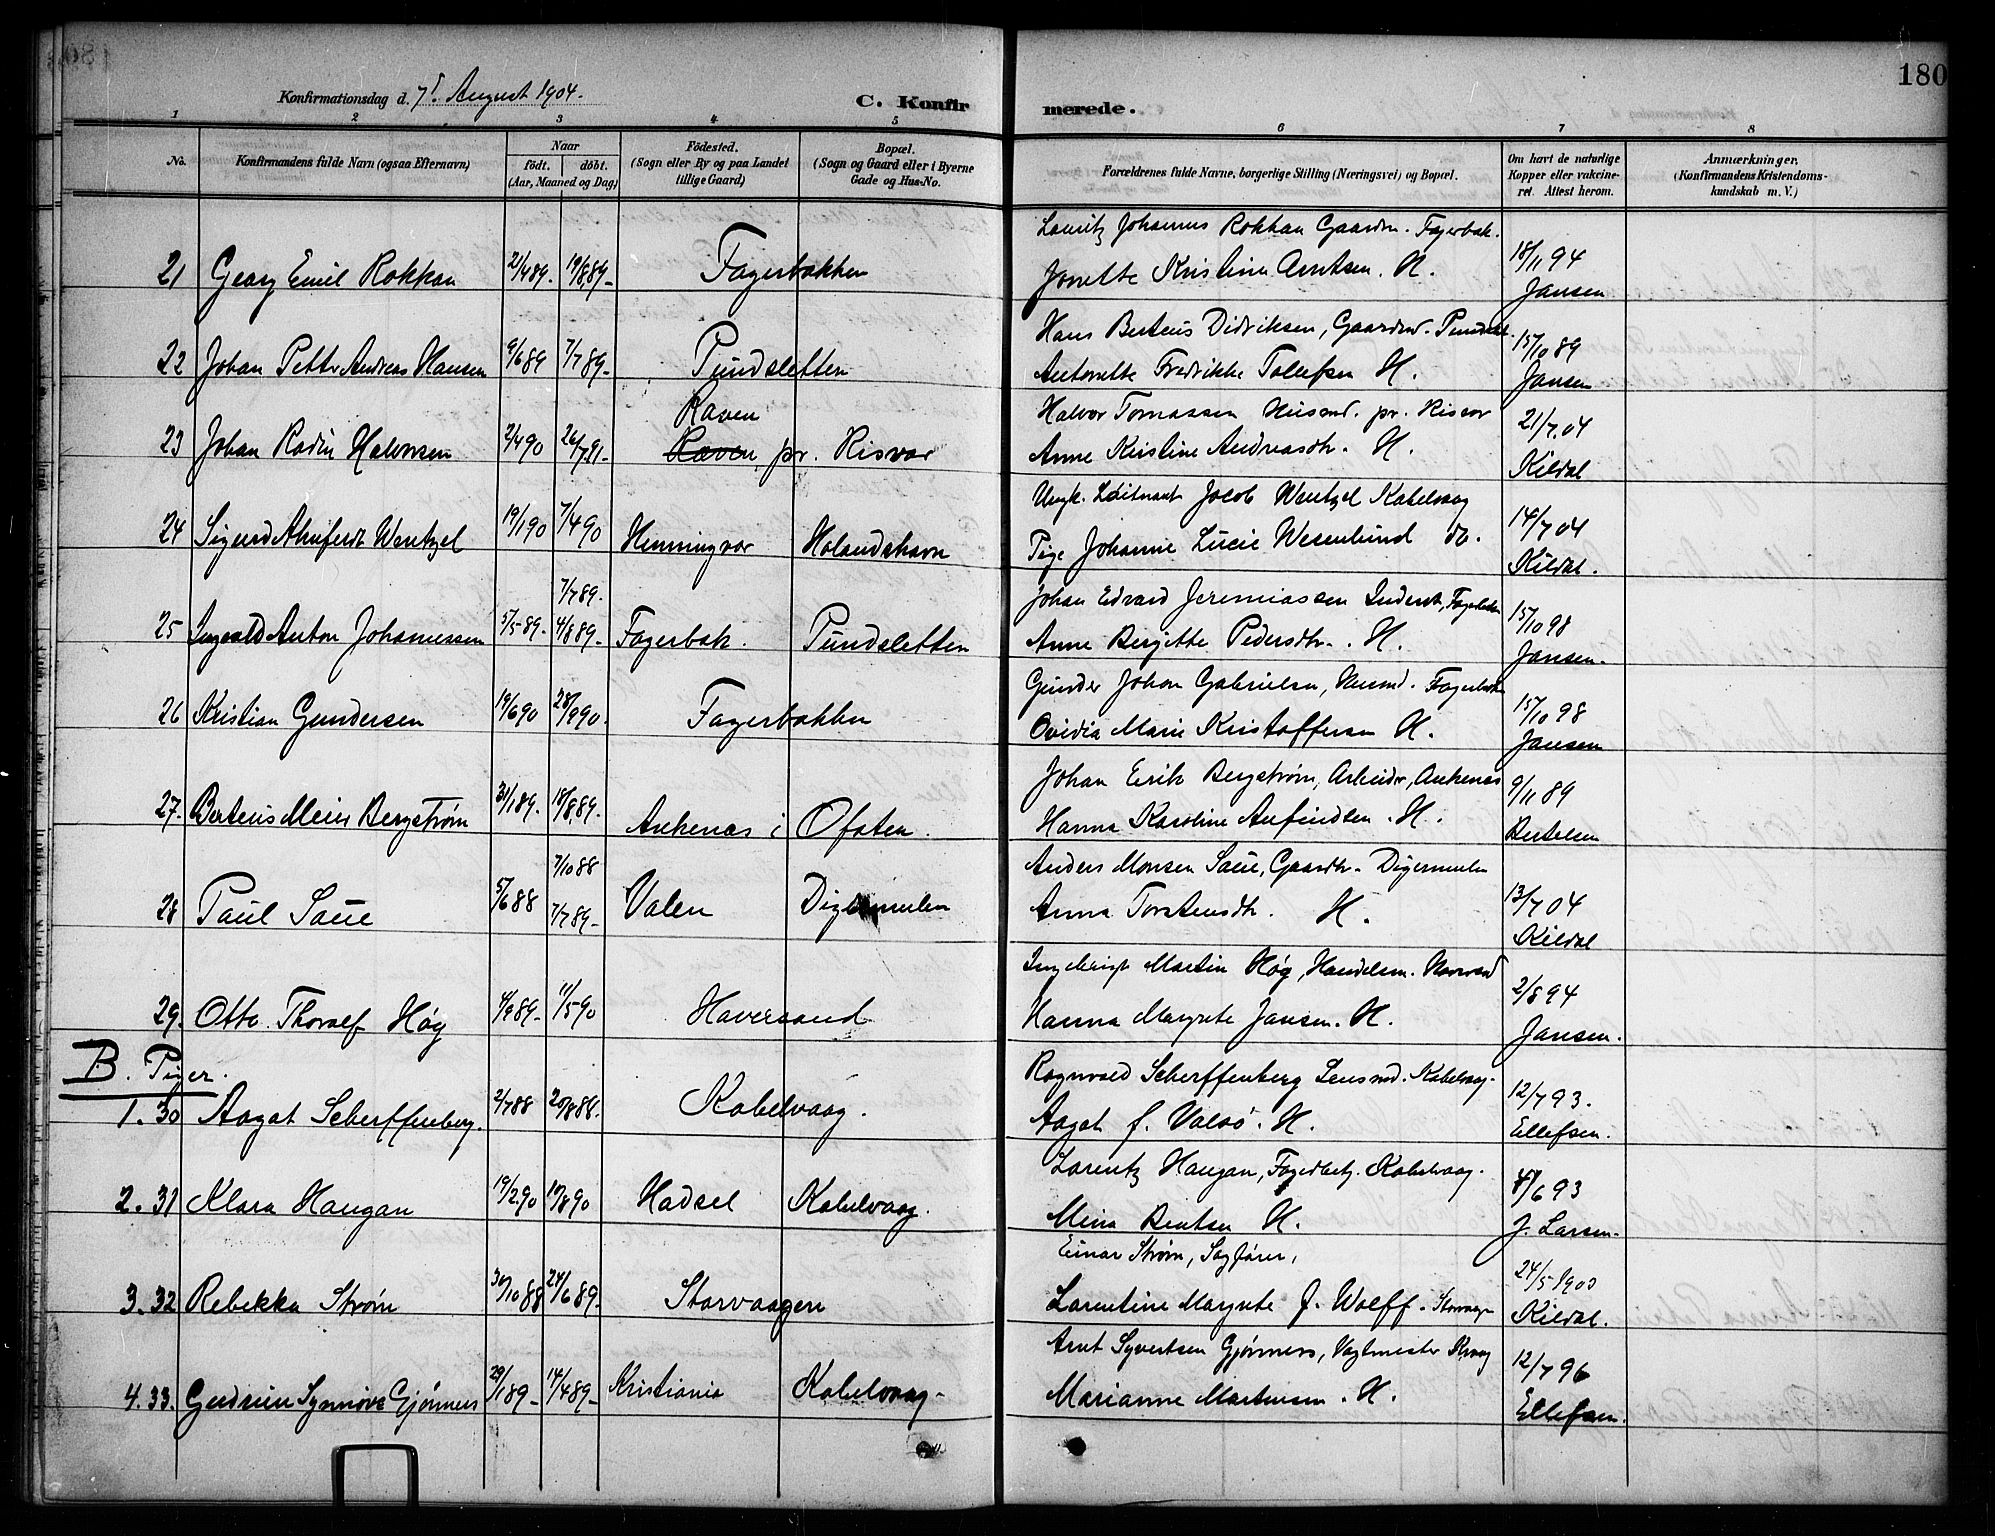 180
Konfirmationsdag d. 7. August 1904.
C. Konfirmerede.
1 2 3 4 5 6 7 8
No.
Konfirmandens fulde Navn (ogsaa Efternavn)
Naar
født. døbt.
(Aar, Maaned og Dag)
Fødested.
(Sogn eller By og paa Landet
tillige Gaard)
Bopæl.
(Sogn og Gaard eller i Byerne
Gade og Hus-No.
Forældrenes fulde Navne, borgerlige Stilling (Næringsvei) og Bopæl.
Om havt de naturlige
Kopper eller vakcine-
ret. Attest herom.
Anmærkninger.
(Konfirmandens Kristendoms-
kundskab m. V.)
Lauritz Johannes Rokkan Gaardm. Fagerbak.
21 Georg Emil Rokkan 2/4 89. 19/8 89 Fagerbakken
Jonette Kristine Arntsen. H. 18/11 94
Jansen
Hans Berteus Didriksen, Gaardm. Pundsl.
22 Johan Petter Andreas Hansen 9/6 89 7/7 89 Pundsletten
Antonette Fredrikke Tollefsen H. 15/10 89
Jansen
Raven
Halvor Tomassen Husmd. pr. Risvær
23 Johan Radin Halvorsen 2/4 90 26/7 91 Raven, pr. Risvær
Anne Kristine Andreasdtr. H. 21/7 04
Kildal
Ungk. Løitnant Jacob Wentzel Kabelvaag
24 Sigurd Wentzel 19/1 90 7/4 90 Henningvær Holandshavn
Pige Johanne Lucie Wesenlund do. 14/7 04
Kildal.
7/7 89.
Johan Edvard Jeremiassen Inderst, Fagerbakken
25 Ingvald Anton Johannessen 5/5 89. 4/8 89 Fagerbak. Pundsletten
Anne Bergitte Pedersdtr. H. 15/10 98
Jansen.
Gunder Johan Gabrielsen, Husmd. Fagerbak
26 Kristian Gundersen 19/6 90 28/9 90. Fagerbakken
Ovidia Marie Kristoffersen H. 15/10 98
Jansen
Johan Erik Bergstrøm, Arbeider, Ankenæs
27. Berteus Meier Bergstrøm 31/1 89. 18/8 89. Ankenæs i Ofoten.
Hanna Karoline Anfindsen. H. 9/11 89
Bertelsen
7/10 88
Anders Monsen Saue, Gaardbr. Digermulen
28 Paul Saue 5/6 88 7/7 89 Valen Digermulen
Anna Torstensdtr. H. 13/7 04
Kildal
Ingebrigt Martin Høg, Handelsm. Haversand
29. Otto Thoralf Høg 4/9 89 11/5 90 Haversand
Hanna Margrete Jansen. H. 2/8 94
Jansen.
B. Piger.
Ragnvald Scherffenberg Lensmd. Kabelvaag.
1. 30 Aagot Scherffenberg. 2/7 88 20/8 88. Kabelvaag.
Aagot f. Valsø. H. 12/7 93.
Ellefsen.
Lorentz Haugan, Kabelvaag.
2. 31 Klara Haugan 19/2 90 17/8 90 Hadsel Kabelvaag.
Mina Bentsen H. 6 93
J. Larsen.
Einar Strøm, Sagfører,
3. 32 Rebekka Strøm 30/10 88 24/6 89. Storvaagen
Laurentine Margrete f. Wolff. Storvaagn 24/5 1903
Kildal.
Arnt Syvertsen Gjønnes, Vagtmester Kvaag
4. 33. Gudrun Synnøve Gjønnes 29/1 89 14/4 89 Kristiania Kabelvaag
Marianne Martinsen. H. 12/7 96
Ellefsen.